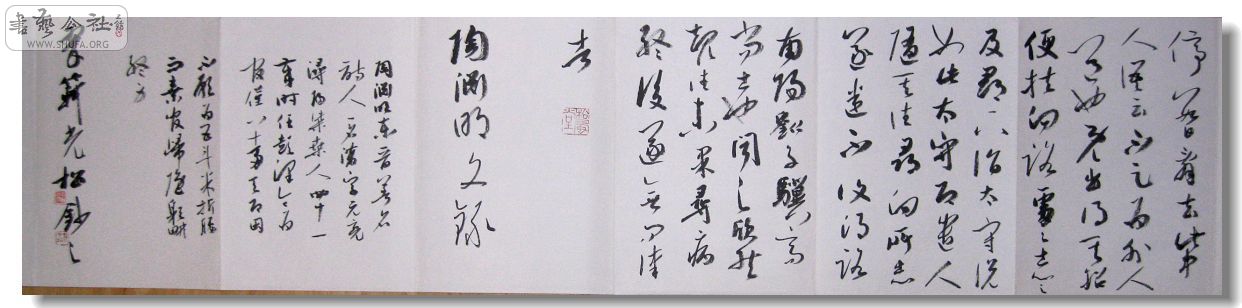 書藝公社
WWW.SHUFA.ORG
停日辭去此中
人語云不足為外人
道也既出得其船
便扶向路處處志之
及郡下詣太守說
如此太守即遣人
隨其往尋向所志
遂迷不復得路
南陽劉子驥高
尚士也聞之欣然
規往未果尋病
終後遂無問津
者
陶淵明文錄
陶淵明東晉著名
詩人一名潛字元亮
潯陽柴桑人四十一
歲時任彭澤令為
官僅八十多天即因
不願為五斗米折腰
而棄官歸隱躬耕
終身
光松鈔之